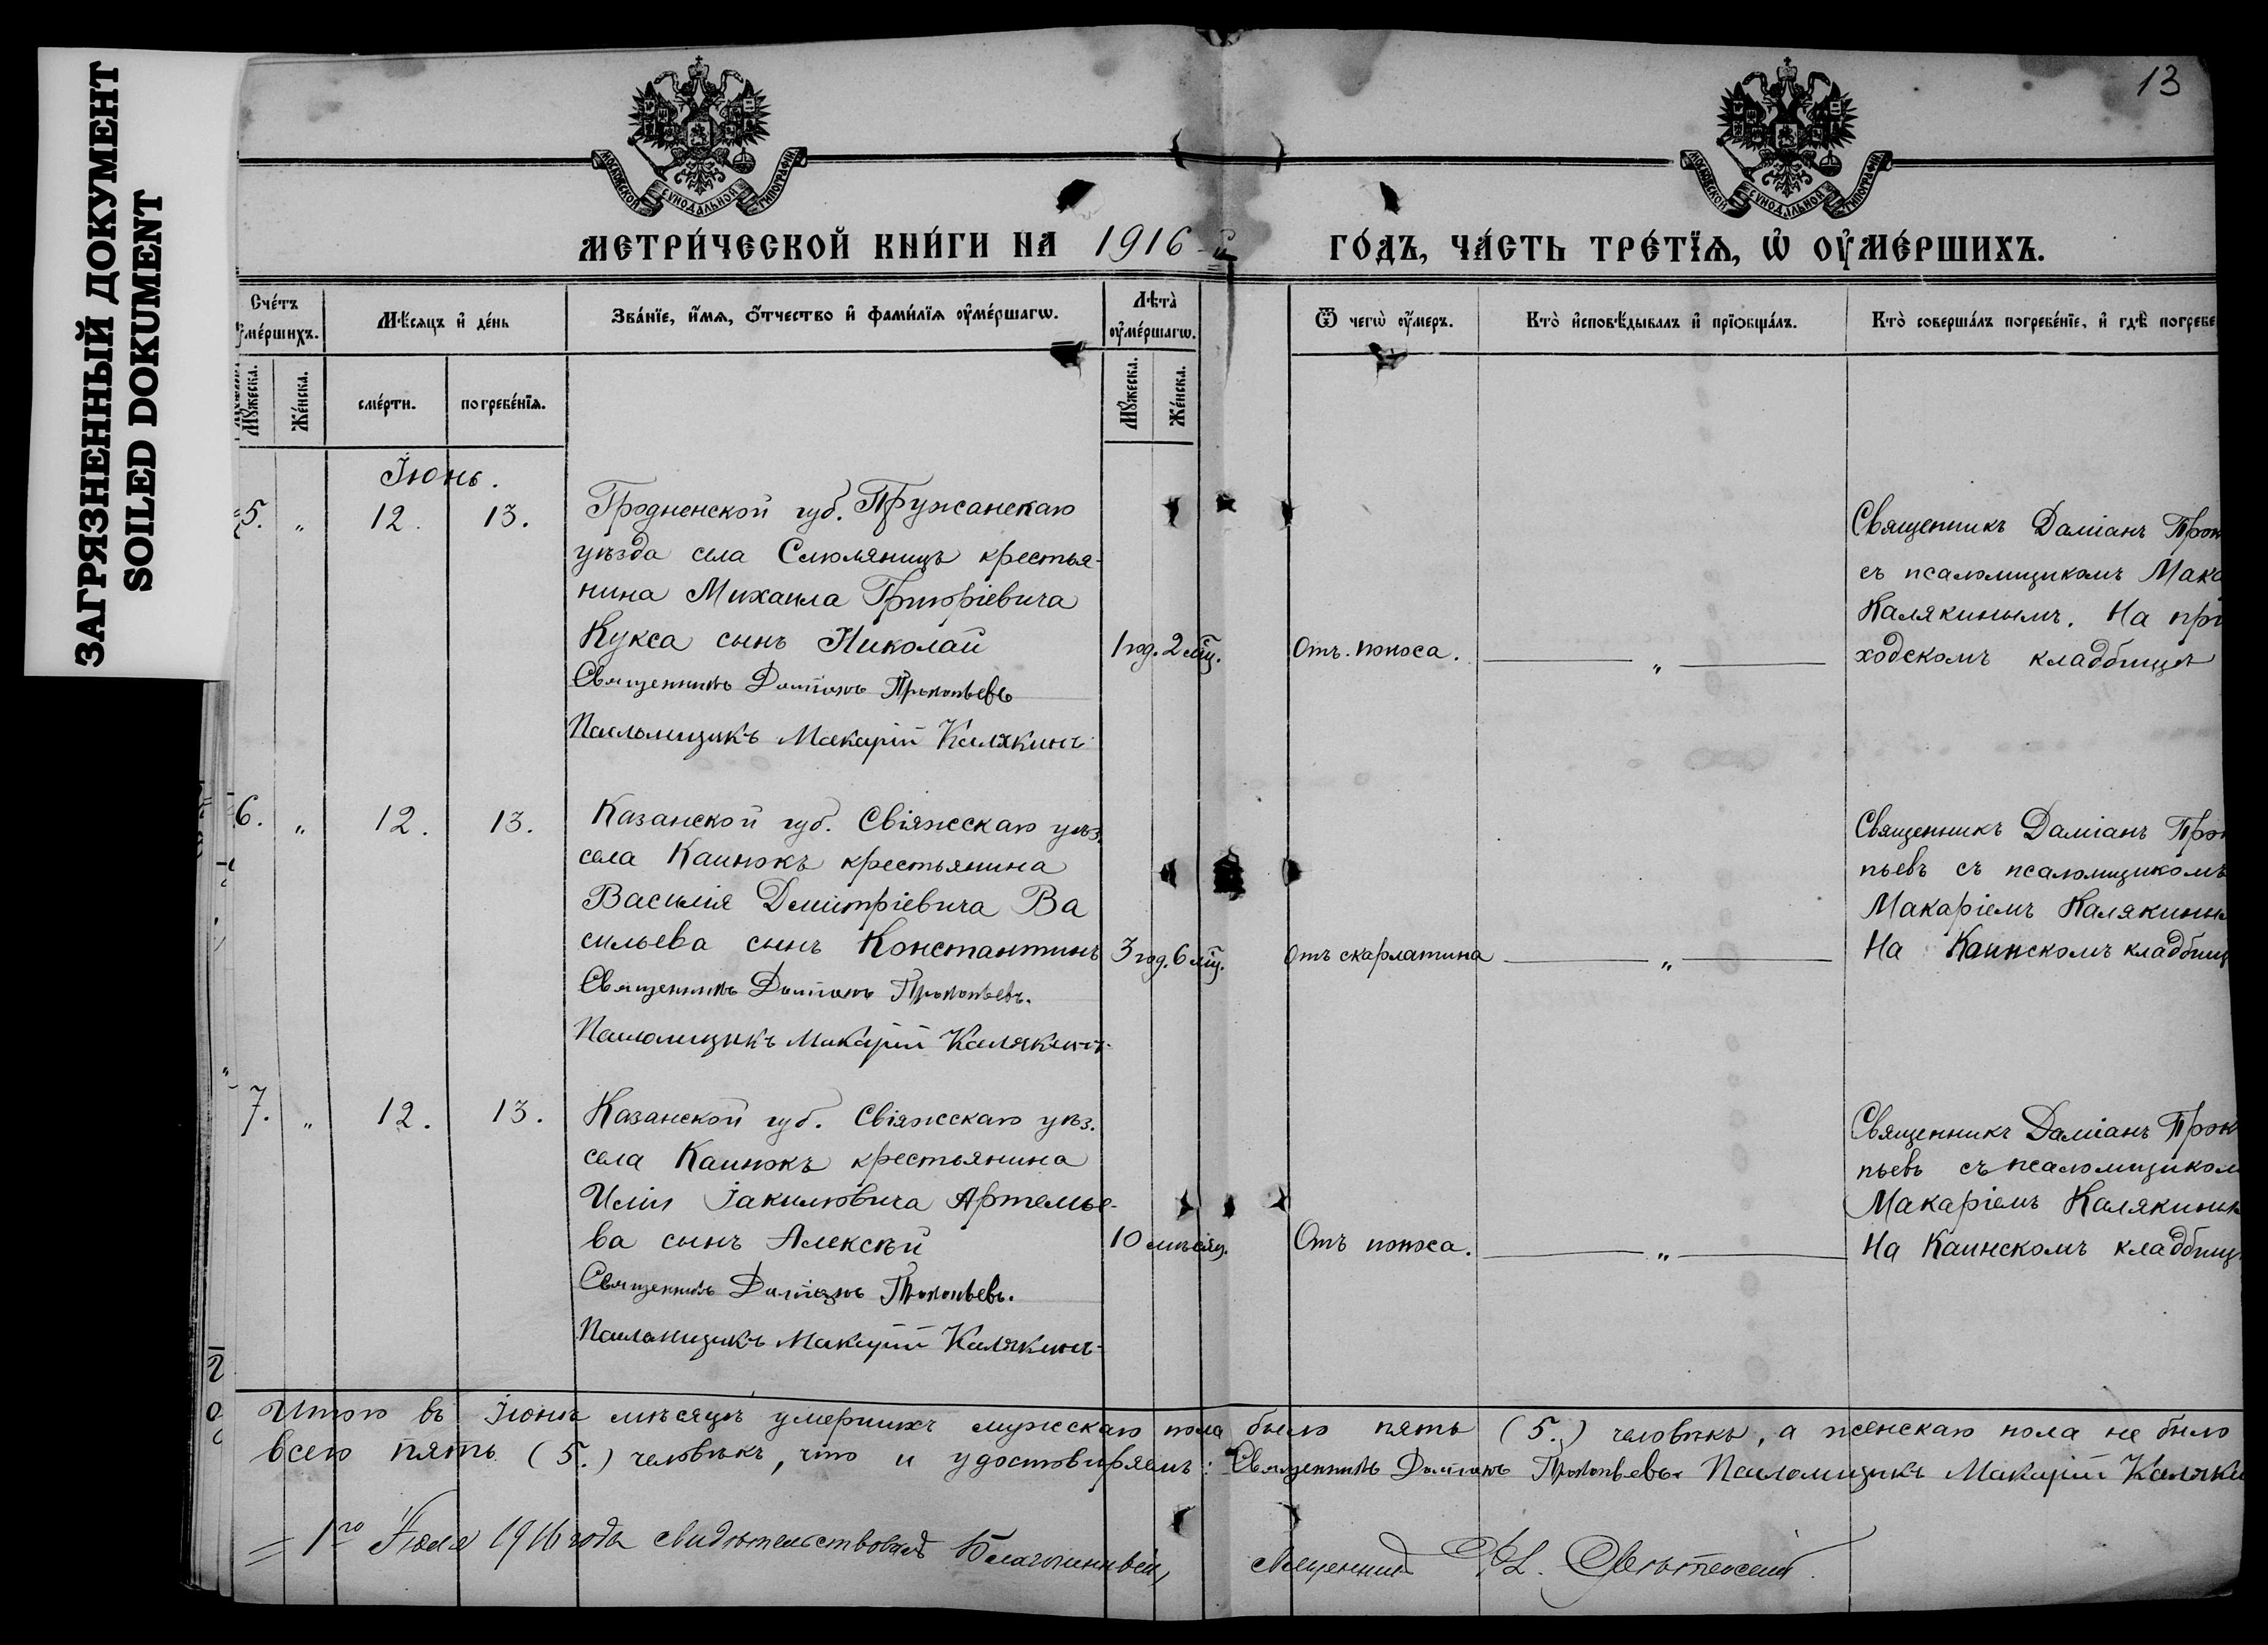 ЗАГРЯЗНЕННЫЙ ДОКУМЕНТ
SOILED DOKUMENT
13
МОСКОВСКОЙ СѴНОДАЛЬНОЙ ТИПОГРАФІИ
МОСКОВСКОЙ СѴНОДАЛЬНОЙ ТИПОГРАФІИ
МЕТРИ́ЧЕСКОЙ КНИ́ГИ НА 1916-й ГО́ДЪ, ЧА́СТЬ ТРЕ́ТЇѦ, Ѡ҆ ОУ҆МЕ́РШИХЪ.
Сче́тъ
оу҆ме́ршихъ.
Мѣ́сяцъ и҆ де́нь
Зва́нїе, и҆́мѧ, ѻ҆́тчество и҆ фами́лїѧ оу҆ме́ршагѡ.
Лѣта̀
оу҆ме́ршагѡ.
Ѿ чегѡ̀ оу҆́меръ.
Кто̀ и҆сповѣ́дывалъ и҆ прїѻбща́лъ.
Кто̀ соверша́лъ погребе́нїе, и҆ гдѣ̀ погребе
Мꙋ́жеска.
Же́нска.
сме́рти.
погребе́нїѧ.
Мꙋ́жеска.
Же́нска.
Іюнь.
5. „ 12. 13.
Гродненской губ. Пружанскаго
уѣзда села Слюляницъ крестья-
нина Михаила Григоріевича
Кукса сынъ Николай
Священникъ Даміанъ Прокопьевъ
Псаломщикъ Макарій Калякинъ
1 год. 2 мѣс.
Отъ поноса.
„
Священникъ Даміанъ Прок
съ псаломщикомъ Мака
Калякинымъ. На при
ходскомъ кладбищѣ
6. „ 12. 13.
Казанской губ. Свіяжскаго уѣз.
села Каинокъ крестьянина
Василія Дмитріевича Ва
сильева сынъ Константинъ
Священникъ Даміанъ Прокопьевъ.
Псаломщикъ Макарій Калякинъ
3 год. 6 мѣс.
Отъ скарлатина
„
Священникъ Даміанъ Прок
пьевъ съ псаломщикомъ
Макаріемъ Калякины
На Каинскомъ кладбищ
7. „ 12. 13.
Казанской губ. Свіяжскаго уѣз.
села Каинокъ крестьянина
Иліи Іакимовича Артемье-
ва сынъ Алексѣй
Священникъ Даміанъ Прокопьевъ.
Псаломщикъ Макарій Калякинъ
10 мѣсяц.
Отъ поноса.
„
Священникъ Даміанъ Прок
пьевъ съ псаломщиком
Макаріемъ Калякины
На Каинскомъ кладбищ
Итого въ Іюнѣ мѣсяцѣ умершихъ мужскаго пола было пять (5.) человѣкъ, а женскаго пола не было
всего пять (5.) человѣкъ, что и удостовѣряемъ: Священникъ Даміанъ Прокопьевъ Псаломщикъ Макарій Каляки
1го Іюля 1916 года свидѣтельствовалъ Благочинный,
священникъ